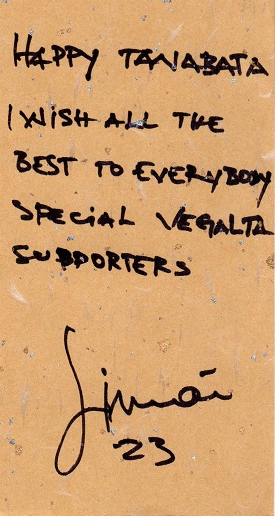 HAPPY TANABATA
I WISH ALL THE
BEST TO EVERYBODY
SPECIAL VEGALTA
SUPPORTERS
Simão
23